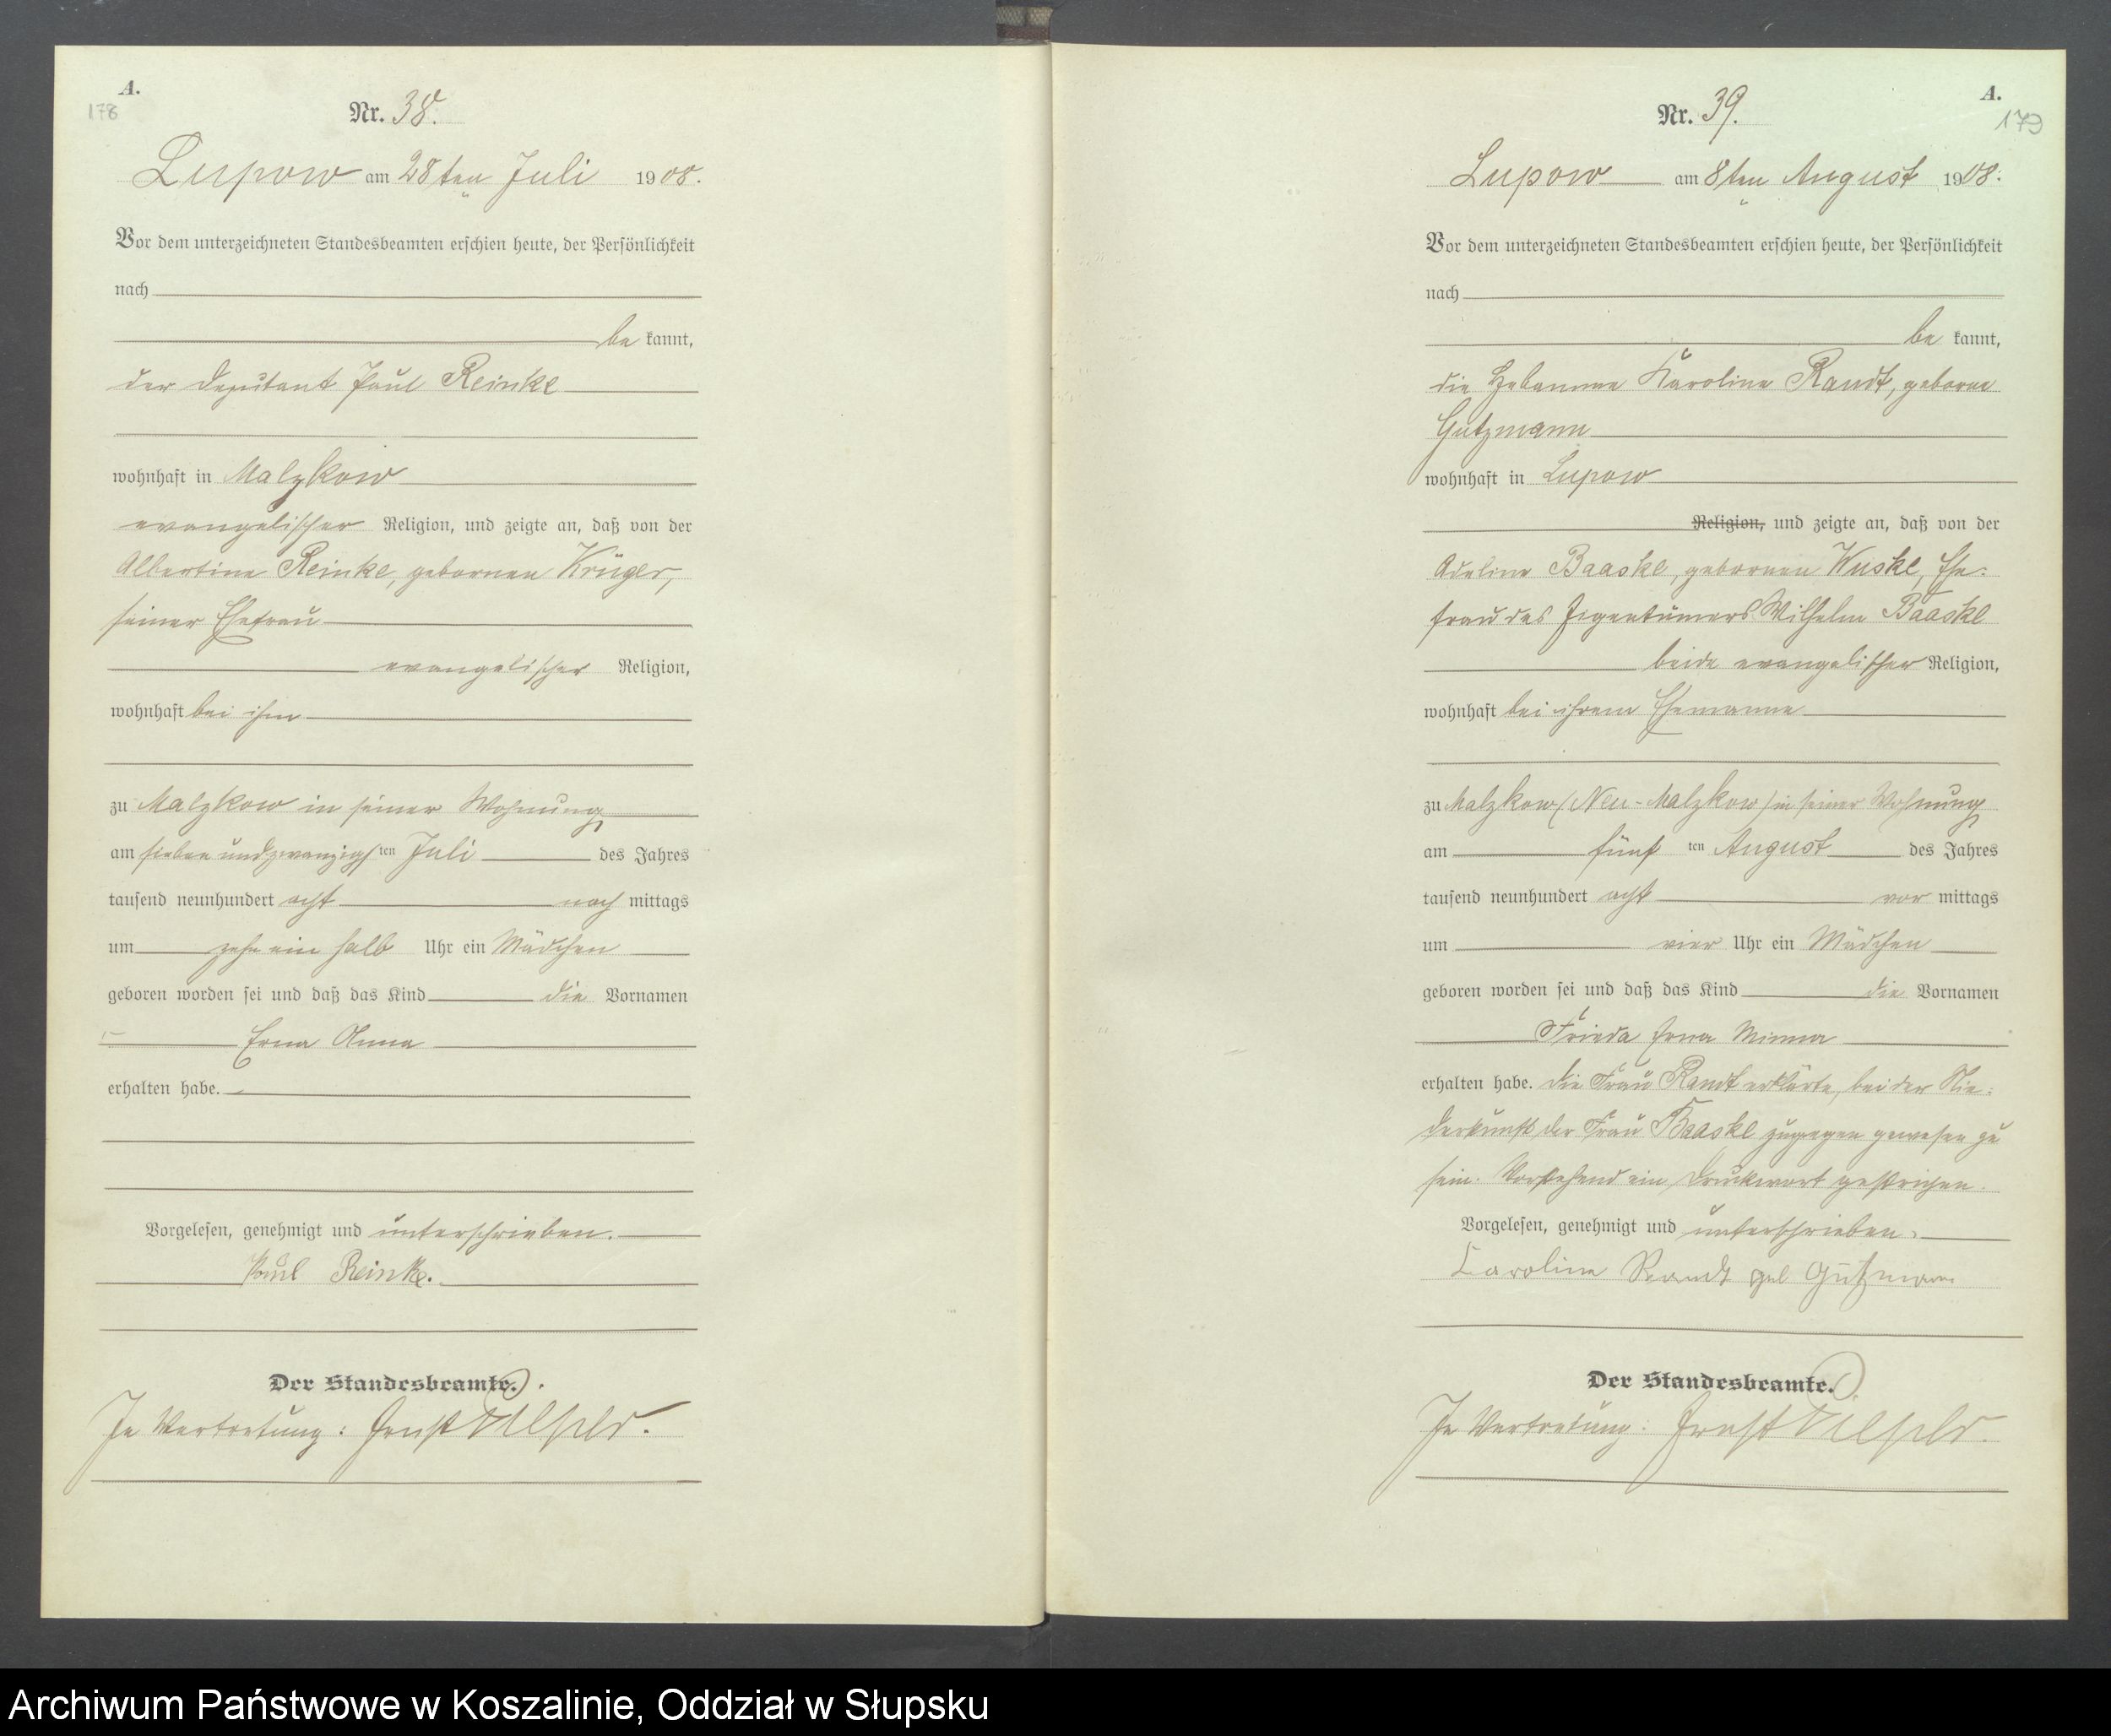 A.
178
Nr. 38.
Lupow am 28ten Juli 1908.
Vor dem unterzeichneten Standesbeamten erschien heute, der Persönlichkeit
nach
be kannt,
der Deputant Paul Reinke
wohnhaft in Malzkow
evangelischer Religion, und zeigte an, daß von der
Albertine Reinke, gebornen Krüger,
seiner Ehefrau
evangelischer Religion,
wohnhaft bei ihm
zu Malzkow in seiner Wohnung
am sieben und zwanzigsten Juli des Jahres
tausend neunhundert acht nach mittags
um zehn ein halb Uhr ein Mädchen
geboren worden sei und daß das Kind die Vornamen
Erna Anna
erhalten habe.
Vorgelesen, genehmigt und unterschrieben.
Paul Reinke.
Der Standesbeamte.
In Vertretung: Ernst
A.
179
Nr. 39.
Lupow am 8ten August 1908.
Vor dem unterzeichneten Standesbeamten erschien heute, der Persönlichkeit
nach
be kannt,
die Hebamme Karoline Randt, geborne
Gutzmann
wohnhaft in Lupow
Religion, und zeigte an, daß von der
Adeline Baaske, gebornen Kuske, Ehe-
frau des Eigentümers Wilhelm Baaske
beide evangelischer Religion,
wohnhaft bei ihrem Ehemanne
zu Malzkow (Neu-Malzkow) in seiner Wohnung
am fünften August des Jahres
tausend neunhundert acht vor mittags
um vier Uhr ein Mädchen
geboren worden sei und daß das Kind die Vornamen
Frieda Erna Minna
erhalten habe. Die Frau Randt erklärte, bei der Nie-
derkunft der Frau Baaske zugegen gewesen zu
sein. Vorstehend ein Druckwort gestrichen.
Vorgelesen, genehmigt und unterschrieben.
Karoline Randt geb Gutzmann
Der Standesbeamte.
In Vertretung: Ernst
Archiwum Państwowe w Koszalinie, Oddział w Słupsku